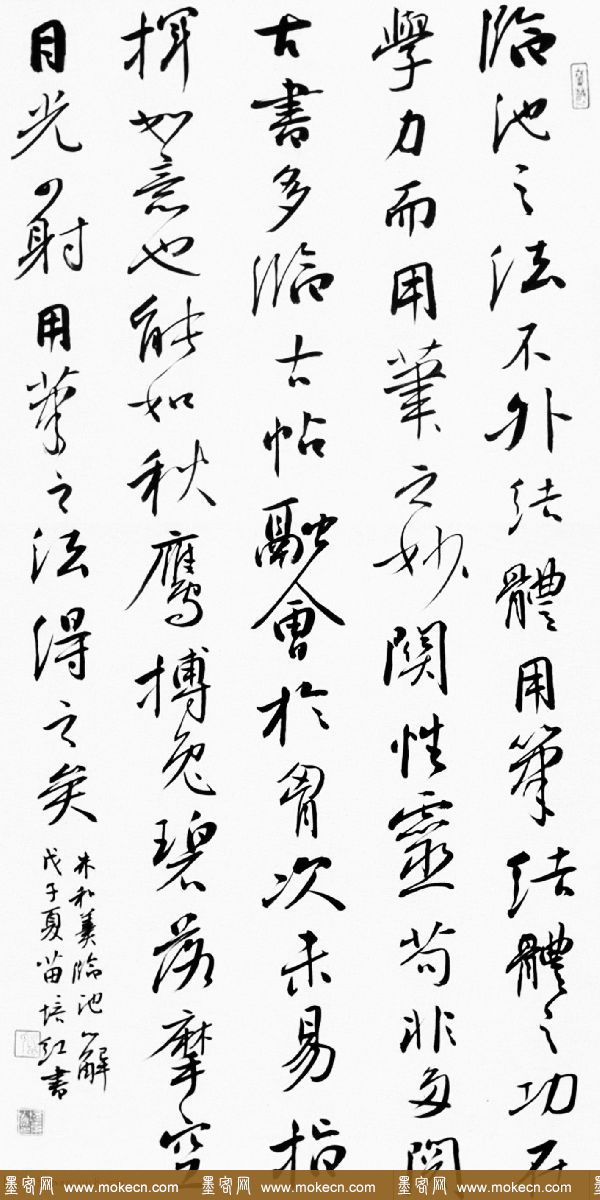 臨池之法不外結體用筆結體之功在
學力而用筆之妙關性靈苟非多閱
古書多臨古帖融會於胷次未易指
揮如意也能如秋鷹搏兔碧落摩空
目光四射用筆之法得之矣
朱和羹臨池心解
戊子夏苗培红書
墨客网 www.mokecn.com 墨客网 www.mokecn.com 墨客网 www.mokecn.com